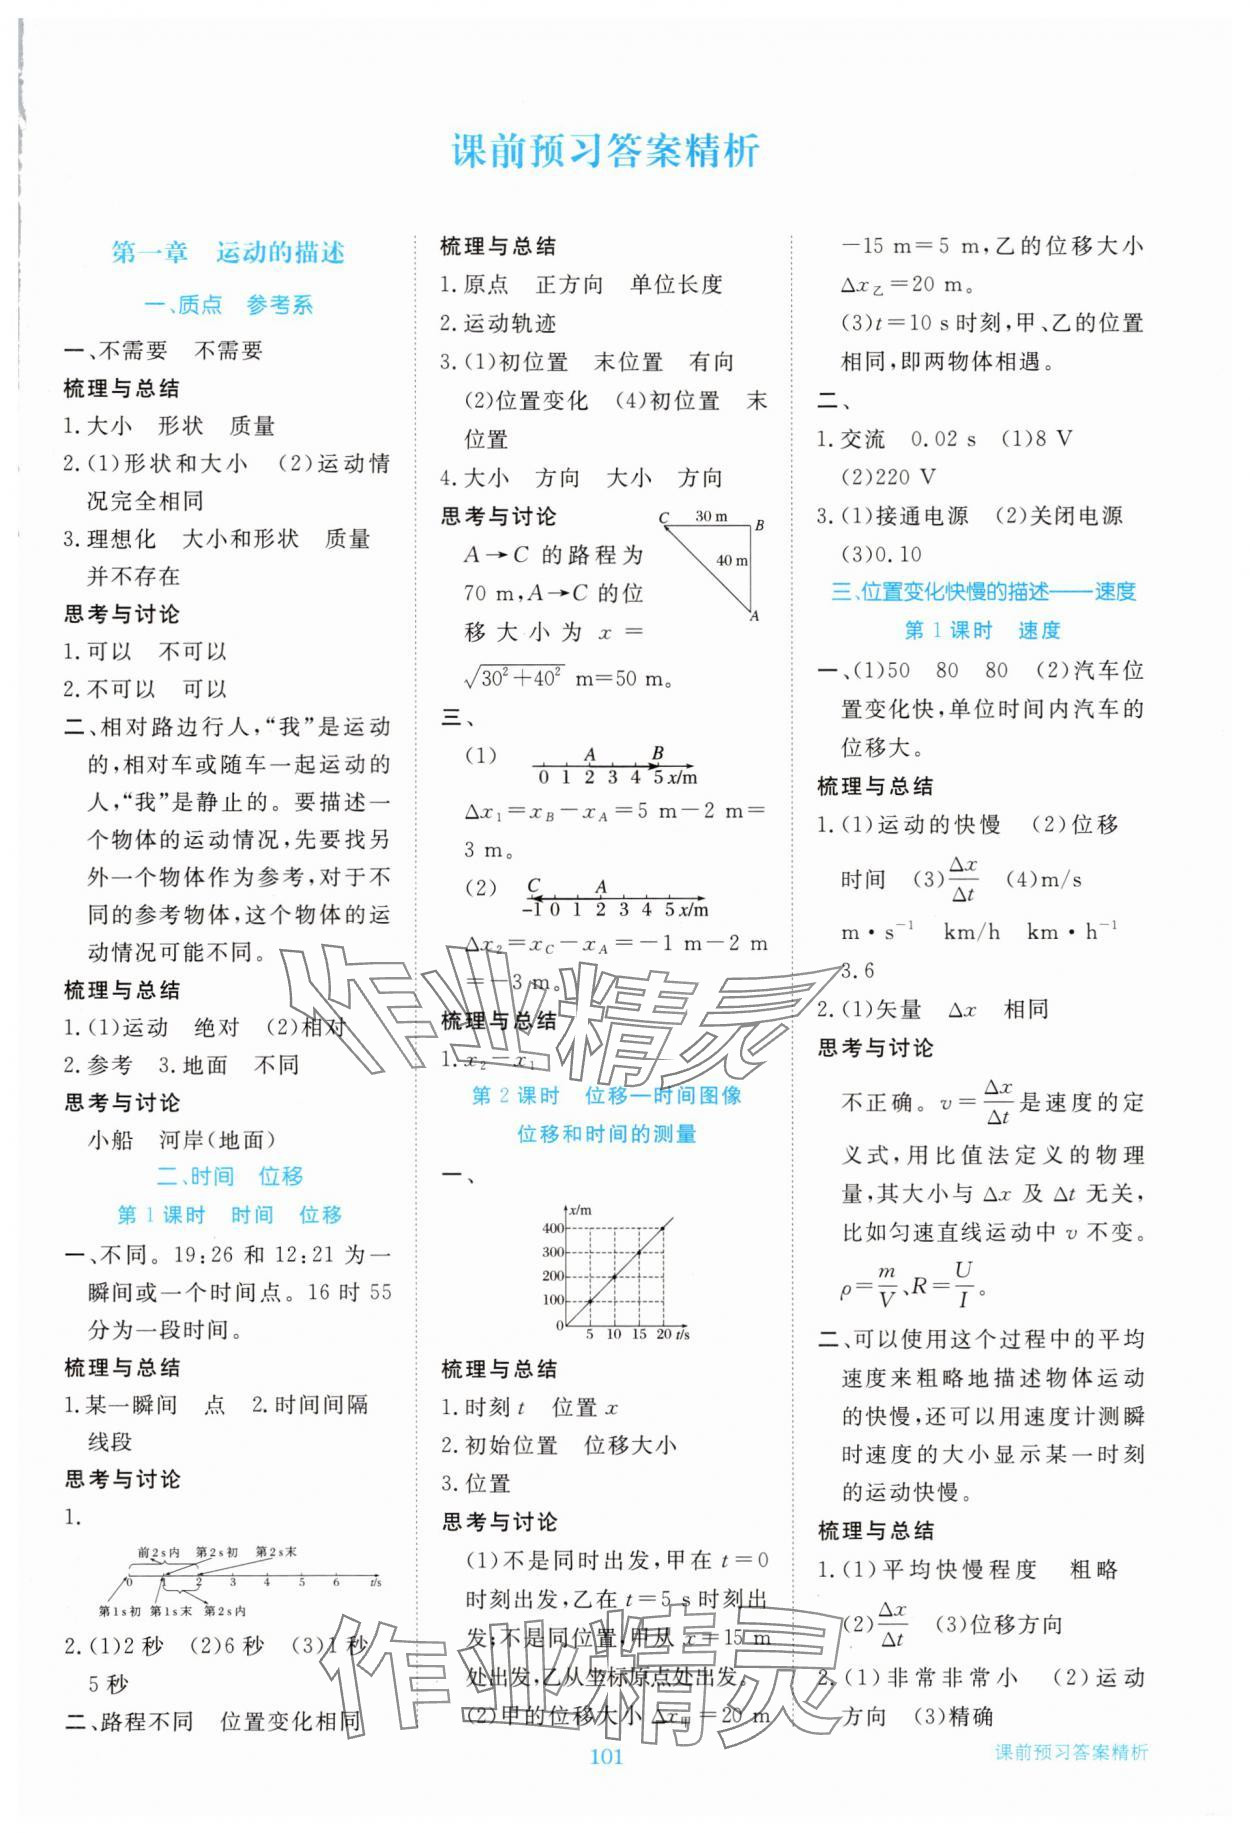 课前预习答案精析
第一章　运动的描述
一、质点　参考系
一、不需要　不需要
梳理与总结
1.大小　形状　质量
2.(1)形状和大小　(2)运动情
况完全相同
3.理想化　大小和形状　质量
并不存在
思考与讨论
1.可以　不可以
2.不可以　可以
二、相对路边行人，“我”是运动
的，相对车或随车一起运动的
人，“我”是静止的。要描述一
个物体的运动情况，先要找另
外一个物体作为参考，对于不
同的参考物体，这个物体的运
动情况可能不同。
梳理与总结
1.(1)运动　绝对　(2)相对
2.参考　3.地面　不同
思考与讨论
小船　河岸(地面)
二、时间　位移
第1课时　时间　位移
一、不同。19:26 和 12:21 为一
瞬间或一个时间点。16 时 55
分为一段时间。
梳理与总结
1.某一瞬间　点　2.时间间隔
线段
思考与讨论
1.
前2 s内　第2 s初　第2 s末
0 1 2 3 4 5 6 t/s
第1 s初　第1 s末　第2 s内
2.(1)2 秒　(2)6 秒　(3)1 秒
5 秒
二、路程不同　位置变化相同
梳理与总结
1.原点　正方向　单位长度
2.运动轨迹
3.(1)初位置　末位置　有向
(2)位置变化　(4)初位置　末
位置
4.大小　方向　大小　方向
思考与讨论
C 30 m B
40 m
A
A→C 的路程为
70 m，A→C 的位
移大小为 x＝
√30²＋40² m＝50 m。
三、
(1)
A B
0 1 2 3 4 5 x/m
Δx₁＝x_B－x_A＝5 m－2 m＝
3 m。
(2)
C A
-1 0 1 2 3 4 5 x/m
Δx₂＝x_C－x_A＝－1 m－2 m
＝－3 m。
梳理与总结
1.x₂－x₁
第2课时　位移—时间图像
位移和时间的测量
一、
x/m
400
300
200
100
0 5 10 15 20 t/s
梳理与总结
1.时刻 t　位置 x
2.初始位置　位移大小
3.位置
思考与讨论
(1)不是同时出发，甲在 t＝0
时刻出发，乙在 t＝5 s时刻出
发；不是同位置，甲从 x＝15 m
处出发，乙从坐标原点处出发。
(2)甲的位移大小 Δx甲＝20 m
－15 m＝5 m，乙的位移大小
Δx乙＝20 m。
(3)t＝10 s时刻，甲、乙的位置
相同，即两物体相遇。
二、
1.交流　0.02 s　(1)8 V
(2)220 V
3.(1)接通电源　(2)关闭电源
(3)0.10
三、位置变化快慢的描述——速度
第1课时　速度
一、(1)50　80　80　(2)汽车位
置变化快，单位时间内汽车的
位移大。
梳理与总结
1.(1)运动的快慢　(2)位移
时间　(3)Δx/Δt　(4)m/s
m·s⁻¹　km/h　km·h⁻¹
3.6
2.(1)矢量　Δx　相同
思考与讨论
不正确。v＝Δx/Δt是速度的定
义式，用比值法定义的物理
量，其大小与 Δx 及 Δt 无关，
比如匀速直线运动中 v 不变。
ρ＝m/V、R＝U/I。
二、可以使用这个过程中的平均
速度来粗略地描述物体运动
的快慢，还可以用速度计测瞬
时速度的大小显示某一时刻
的运动快慢。
梳理与总结
1.(1)平均快慢程度　粗略
(2)Δx/Δt　(3)位移方向
2.(1)非常非常小　(2)运动
方向　(3)精确
作业精灵
作业精灵
101
课前预习答案精析